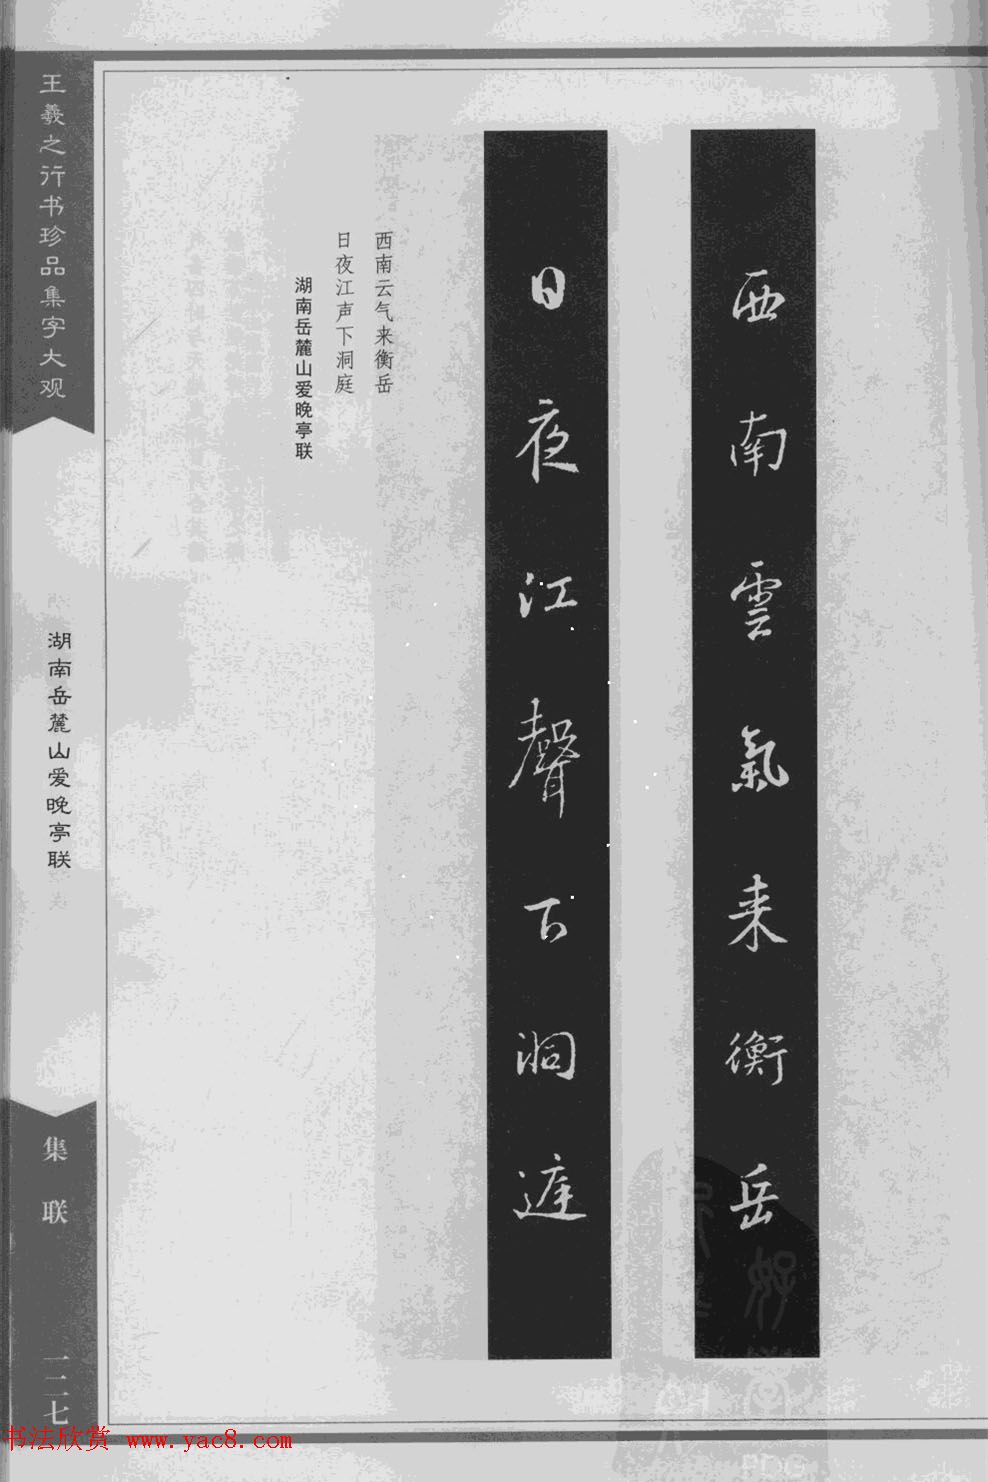 西南雲氣来衡岳
日夜江聲下洞庭
西南云气来衡岳
日夜江声下洞庭
湖南岳麓山爱晚亭联
王羲之行书珍品集字大观
湖南岳麓山爱晚亭联
集联
一二七
书法欣赏 www.yac8.com